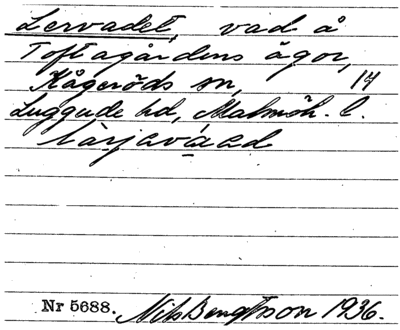 Lervadet, vad å
Toftagårdens ägor,
Kågeröds sn, 14
Luggude hd, Malmöh. l.
lärjavaad
Nr 5688. Nils Bengtsson 1936.